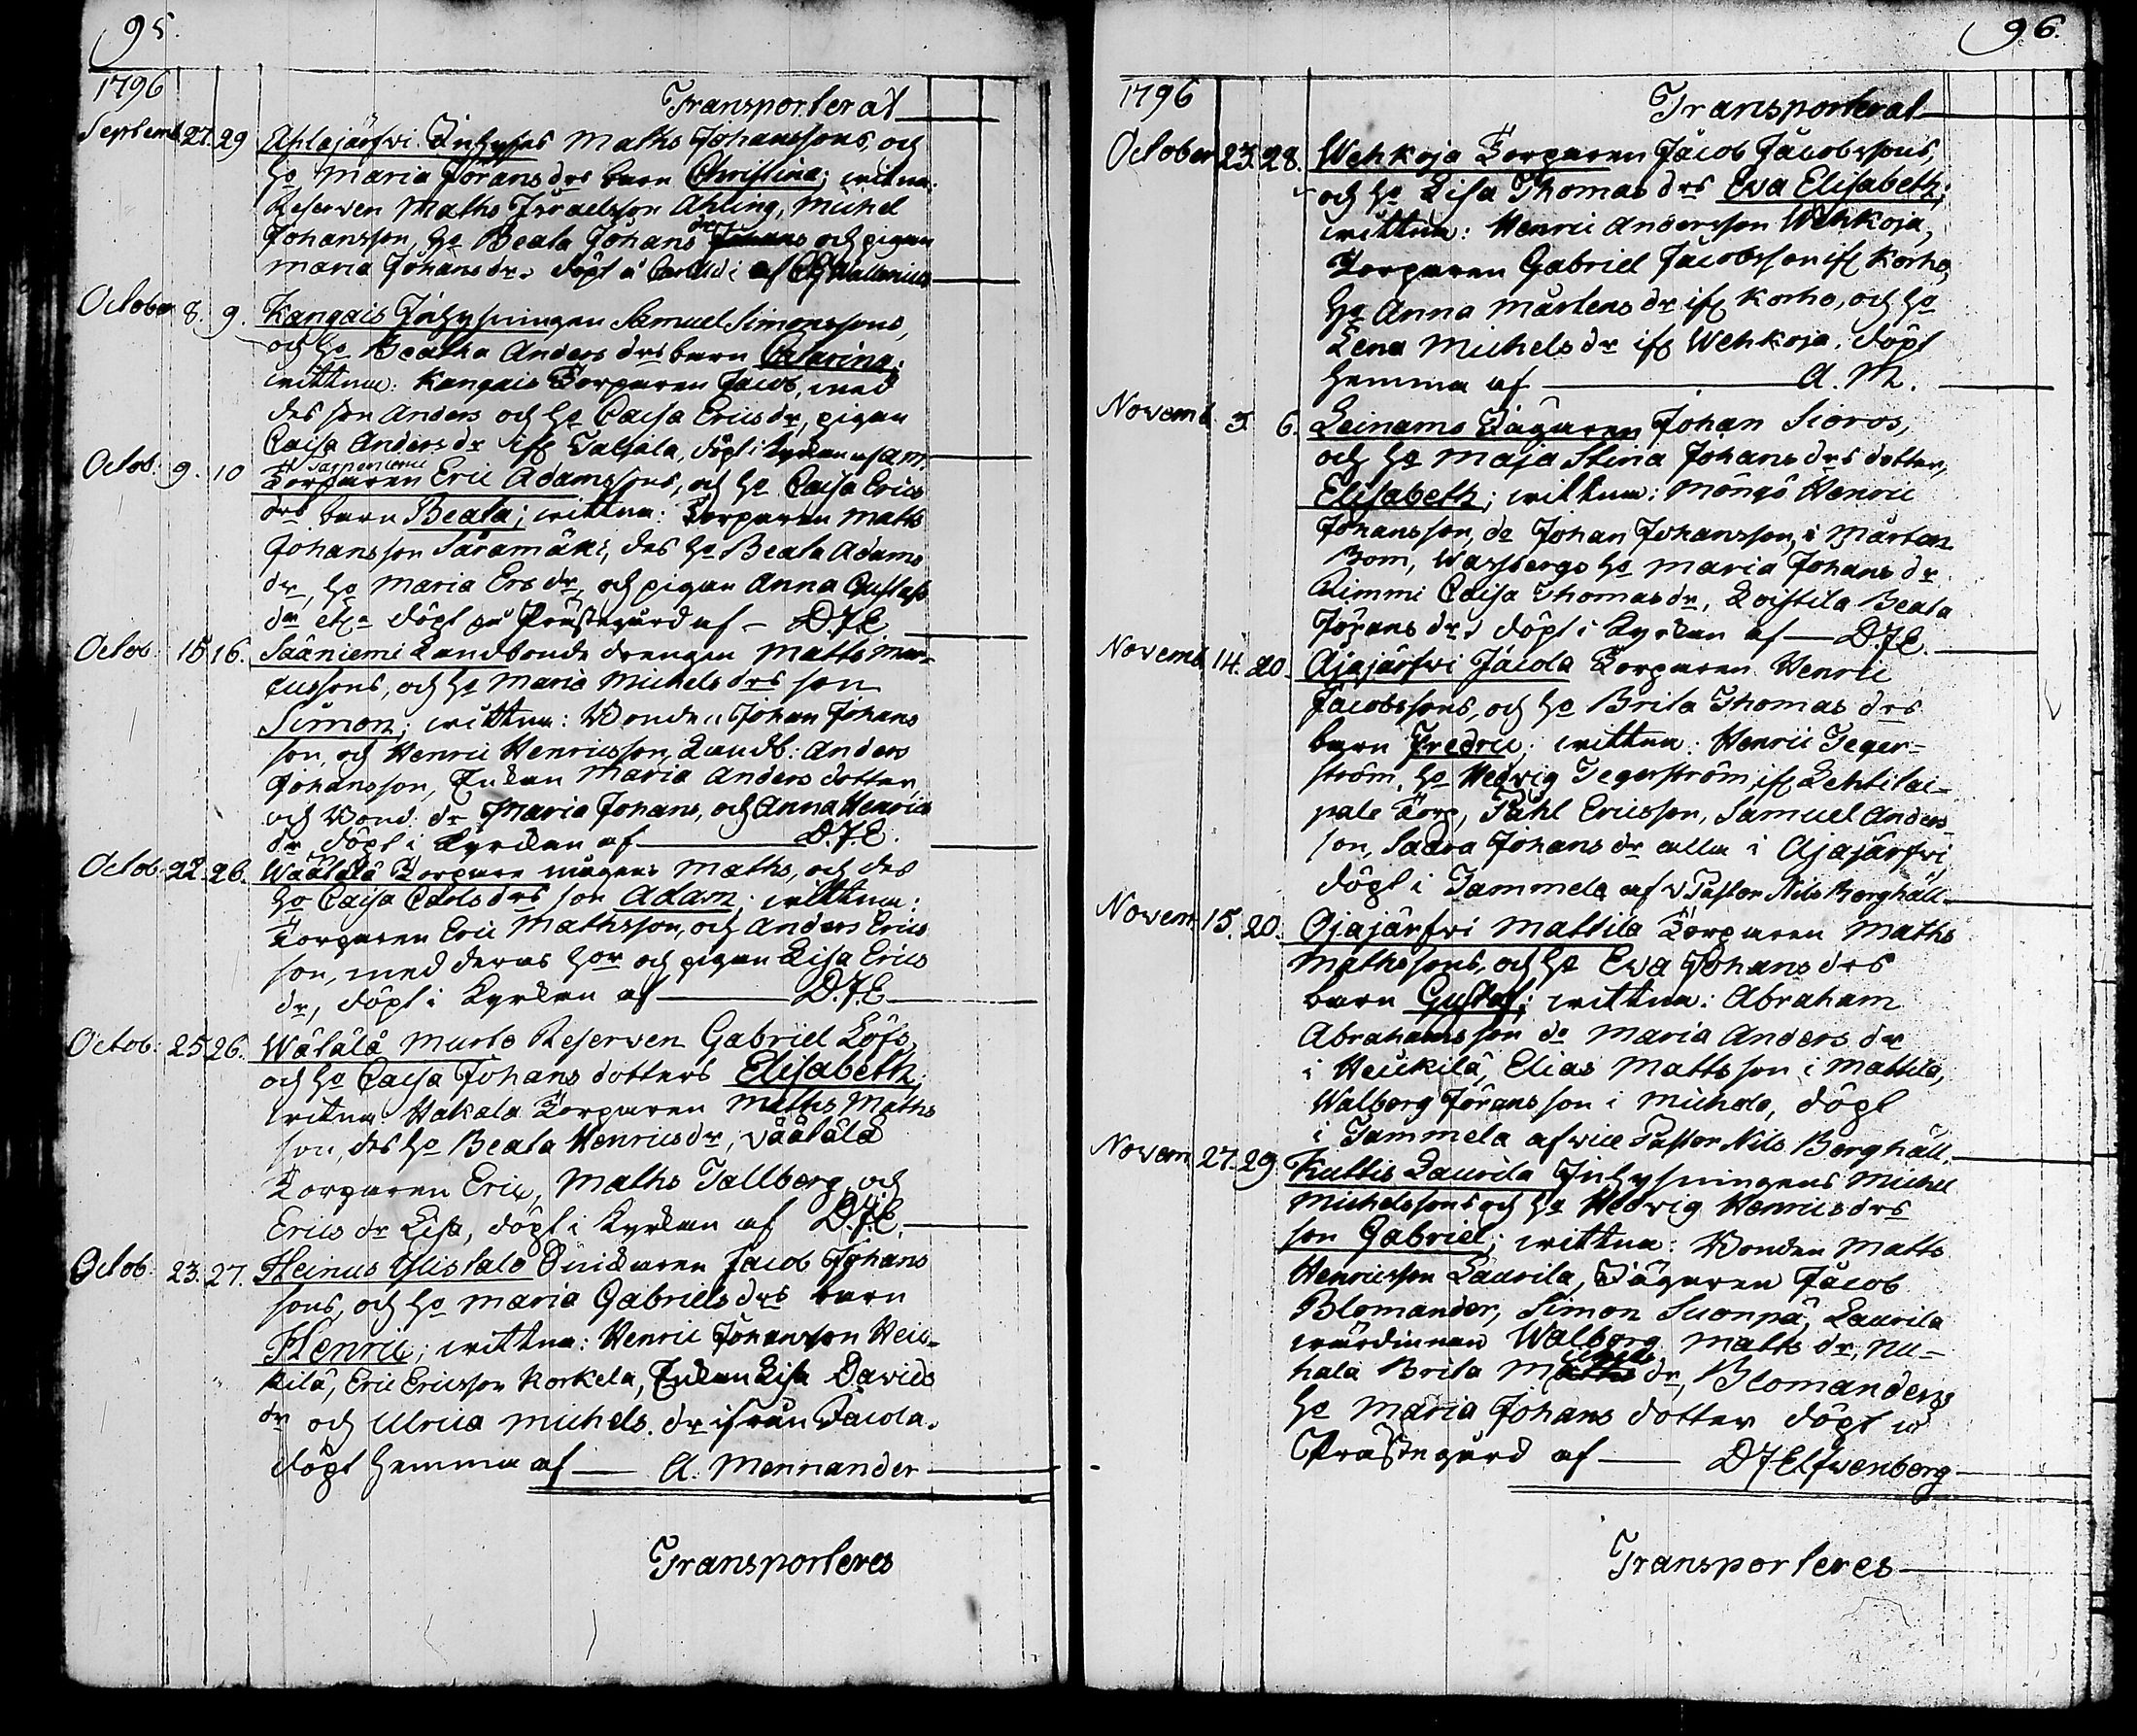 95.
1796
Transporterat
Septemb. 27. 29 Ahlajärfwi Inhyses Maths Johanssons, och
hu Maria Jörans drs barn Christina; witn:
Reserven Maths Israelsson Ahling, Michel
Johansson, hu Beata Johans dr och pigan
Maria Johans dr, döpt i af
October 8. 9. Kangais Inhysningen Samuel Simonssons,
och hu Beatha Anders drs barn Catarina;
wittna: Kangais Torparen Jacob, med
des son Anders och hu Caisa Erics dr, pigan
Caisa Anders dr ifr Talsala, döpt i Kyrkan af A.M.
Octob: 9. 10 Torparen Eric Adamssons, och hu Caisa Erics
drs barn Beata; wittna: Torparen Matts
Johansson Säramäki, des hu Beata Adams
dr, hu Maria Ers dr, och pigan Anna Gustafs
dr döpt på Prästegård af - D.J.E
Octob: 15 16. Sääniemi Landbonde drengen Matts Mar-
cussons, och hu Maria Michels drs son
Simon; wittna: Bonden Johan Johans
son, och Henric Henricsson, Landb: Anders
Johansson, Enkan Maria Anders dotter,
och Bond: dr Maria Johans, och Anna Henrics
dr döpt i Kyrkan af D.J.E.
Octob. 22. 26. Wäätälä Torpare mågens Maths, och des
hu Caisa Carls drs son Adam; wittna:
Torparen Eric Mathsson, och Anders Erics
son, med deras hor och pigan Lisa Erics
dr, döpt i Kyrkan af D.J.E
Octob: 25 26. Wätälä Murto Reserven Gabriel Löfs,
och hu Caisa Johans dotters Elisabeth;
witna: Hakala Torparen Maths Maths
son, des hu Beata Henrics dr, Väätälä
Torparen Eric, Maths Tallberg, och
Erics dr Lisa, döpt i Kyrkan af D.J.E.
Octob: 23. 27. Heinus Ylistalo Jacob Johans
sons, och hu Maria Gabriels drs barn
Henric; wittna: Henric Johansson Heic-
kilä, Eric Ericsson Korkela, Enkan Lisa Davids
dr och Ulrica Michels dr ifrån Jacola.
döpt hemma af A. Mennander
Transporteres
96.
1796
Transporterat
October 23. 28. Wehkoja Torparen Jacob Jacobssons,
och hu Lisa Thomas drs Eva Elisabeth;
wittna: Henric Andersson Wehkoja,
Torparen Gabriel Jacobsson ifr Korho,
hu Anna Mårtens dr ifr Korho, och hu
Lena Michels dr ifr Wehkoja. döpt
hemma af A. M.
Novemb. 3 6. Leinamo Johan Sioros,
och hu Maja Stina Johans drs dotter,
Elisabeth; wittna: Möngö Henric
Johansson, do Johan Johansson, i Mårten
hu Maria Johans dr
Caisa Thomas dr, Beata
Jörans dr, döpt i Kyrkan af D.J.E.
Novemb. 14. 20. Ojajärfwi Jacola Torparen Henric
Jacobssons, och hu Brita Thomas drs
barn Fredric; wittna: Henric Teger-
ström, hu Hedwig Tegerström, ifr Lehtilai-
pale Torp, Påhl Ericsson, Samuel Anders
son, Saara Johans dr alla i Ojajärfwi,
döpt i Tammela af v Pastor Nils Berghäll.
Novem 15. 20. Ojajärfwi Mattila Torparen Maths
Mathssons, och hu Eva Johans drs
barn Gustaf; wittna: Abraham
Abrahamsson do Maria Anders dr
i Heickilä, Elias Mattsson i Mattila,
Walborg Jöransson i Michola, döpt
i Tammela af vice Pastor Nils Berghäll.
Novem 27. 29. Kuttis Laurila Inhysningens Michel
Michelssons och hu Hedwig Henrics drs
son Gabriel; wittna: Bonden Matts
Henricsson Laurila, Jägaren Jacob
Blomander, Simon Suonpä, Laurila
wärdinnan Walborg Matts dr, Nu-
hala Brita Michels dr, Blomanders
hu Maria Johans dotter döpt i
Prästegård af D.J.Elfwenberg
Transporteres